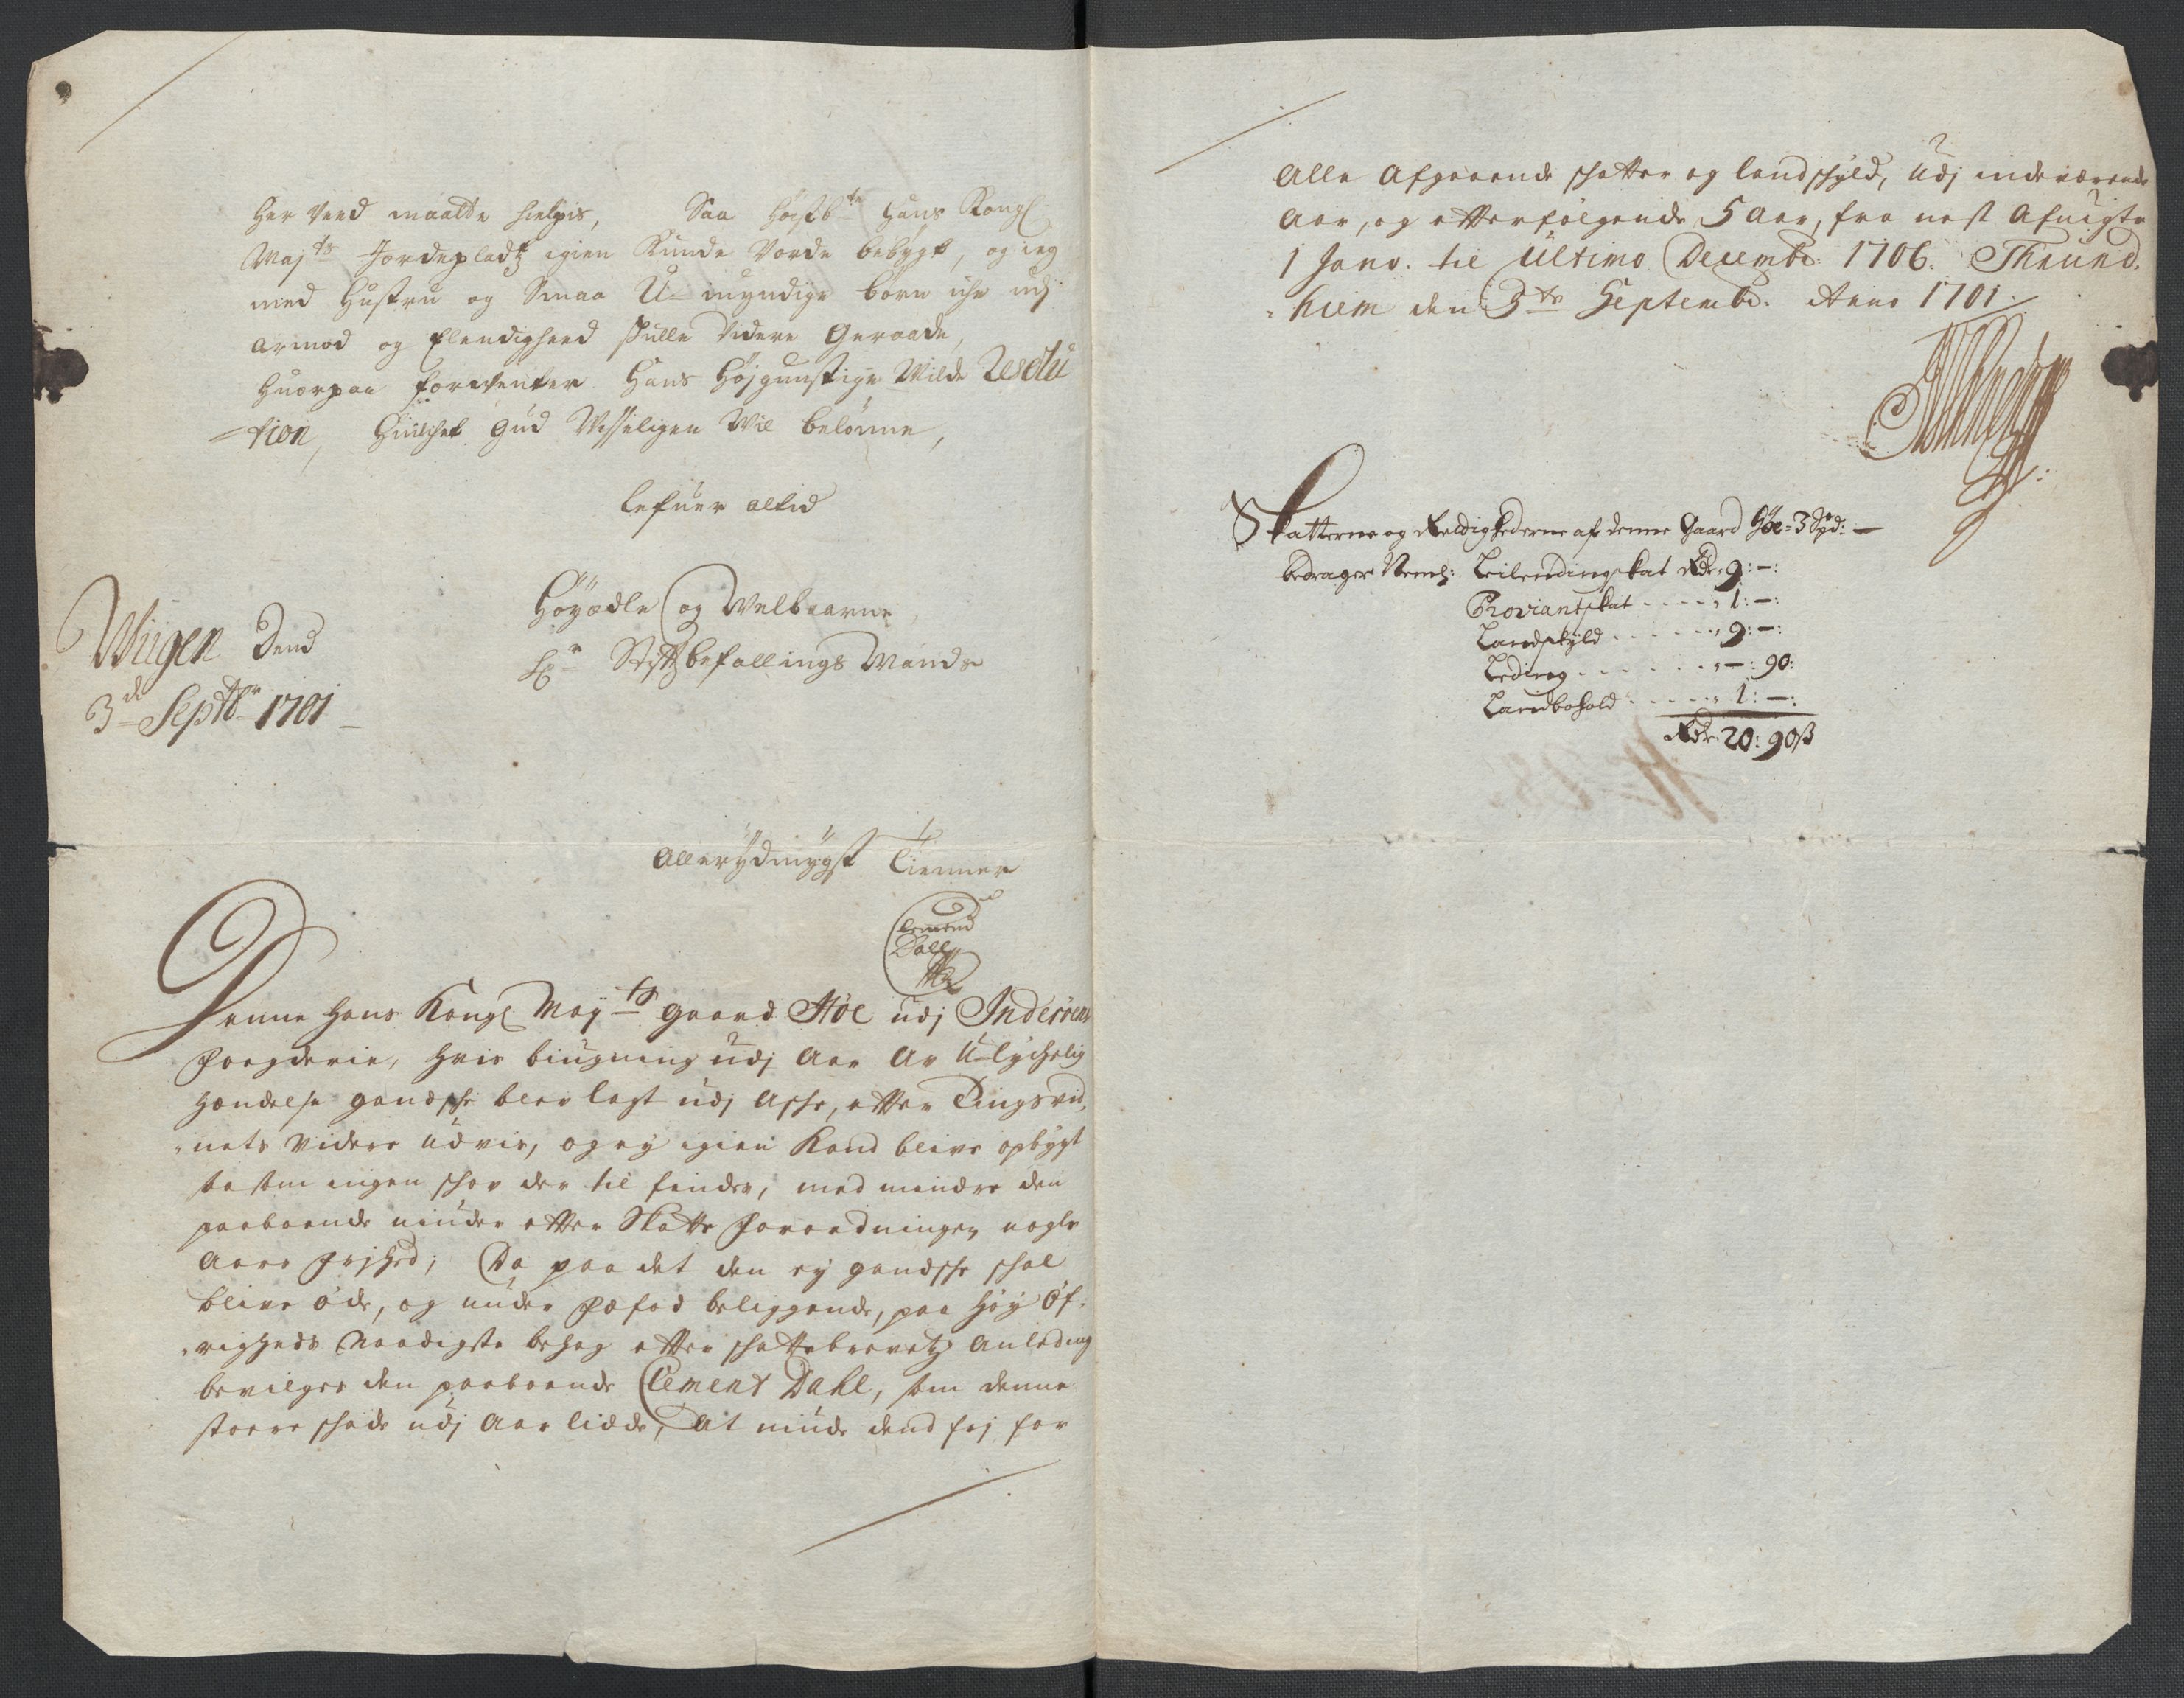 Her Veed maatte hielpis, Saa Høistb:te Hans Kongl:
Maj:ts Jordepladtz igien Kunde Vorde bebÿgt, og ieg
med Hustru og Smaa U-mÿndige børn iche udj
armod og Elendigheed skulle Videre Geraade,
Huorpaa forventer Hans Højgunstige Milde Resolu
=tion, Huilchet Gud Visseligen Vil belønne,
lefuer altid
Høÿædle og Welbaarne
Hr Stiftbefallings Mands
Wiigen Dend
3de Septbr 1701
Allerÿdmÿgst Tienner
Clemend
Dall
Denne Hans Kongl Maÿts gaard Høe udj Inderøens
fogderie, hvis biugning udj Aar Av Ulÿchelig
Hendelse gandshe blev lagt udj Ashe, efter Tingsvid,
nets Videre udvis, og eÿ igien Kand blive opbÿgt
saasom ingen schov der til findes, med mindre den
paaboende niuder efter Skatte forordningen nogle
Aars frjhed; Da paa det den eÿ gandshe schal
blive øde, og under fæfod beliggende, paa Høÿ Øf:
righeds Naadigste behag efter schattebrevetz Anleding
bevilges den paaboende Clement Dahl, som denne
store schade udj Aar lidde, At niude dend frj for
Alle Afgaaende schatter og landschÿld, udj indeværende
Aar, og efterfølgende 5 Aar, fra nest Afvigte
1 Janv. til Ultimo Decembr: 1706. Thrund,
hiem den 3te Septembr: Anno 1701.
Skatterne og Reldighederne af denne Gaard Høe = 3 Spd: —
bedrager Neml: Leilendingskat Rdr 9: –:
Proviantskat - - - - „ 1: –:
Landskÿld - - - - - - „ 9: –:
Leding - - - - - - - „ –: 90:
Landbohold - - - - - „ 1: –:
Rdr 20: 90 ß